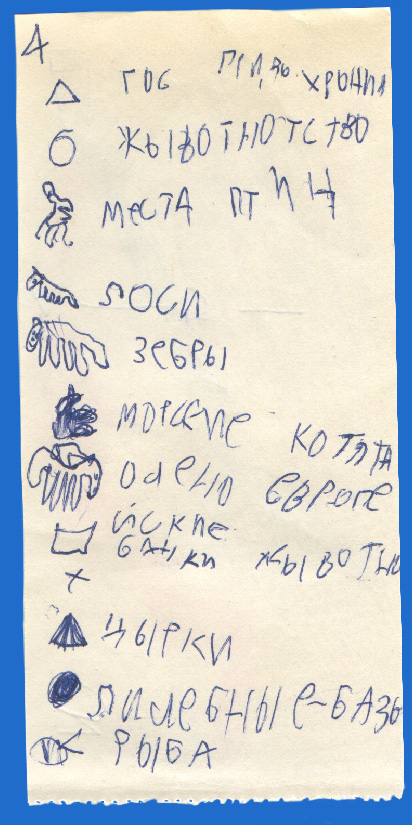 4
ГОС ПРИДЫ ХРОНИЛ
ЖЫВОТНОТСТВО
МЕСТА ПТИЦ
ЛОСИ
ЗЕБРЫ
МОРСКИЕ КОТЯТА
ОЛЕНЮ ЕВРОПЕ
ЙСКИЕ
БАНКИ ЖЫВОТНЮ
ЦЫРКИ
ЛИЛЕБНЫЕ-БАЗЫ
РЫБА